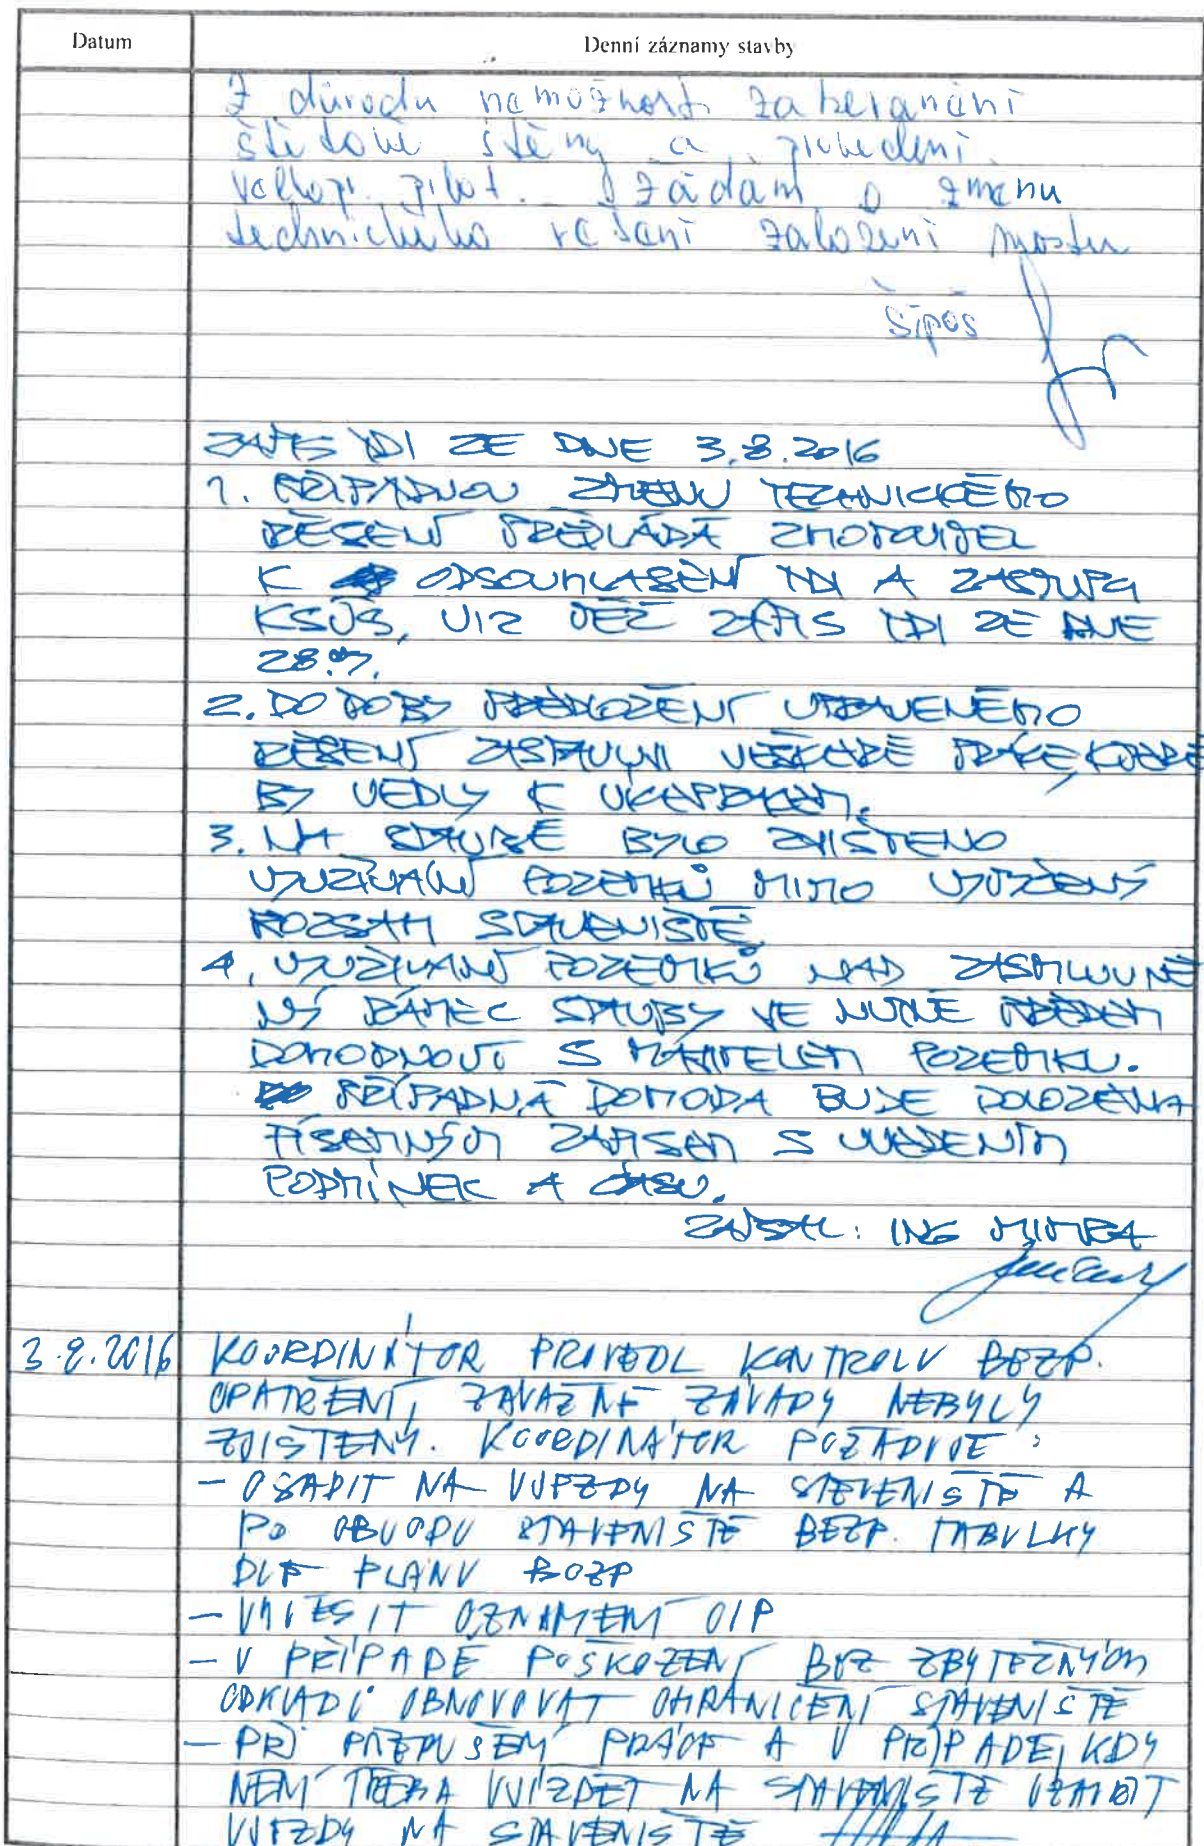 Datum
Denní záznamy stavby
Z důvodu nemožnosti zaberanění
štětové stěny a provedení
velkopr. pilot žádám o změnu
technického řešení založení mostu
Šipoš
ZÁPIS TDI ZE DNE 3.8.2016
1. PŘÍPADNOU ZMĚNU TECHNICKÉHO
ŘEŠENÍ PŘEDLÁDÁ ZHOTOVITEL
K ODSOUHLASENÍ TDI A ZÁSTUPCI
KSÚS, VIZ TÉŽ ZÁPIS TDI ZE DNE
28.7.
2. DO DOBY PŘEDLOŽENÍ UPRAVENÉHO
ŘEŠENÍ ZASTAVIL VEŠKERÉ PRÁCE, KTERÉ
BY VEDLY K VÍCEPRACEM.
3. NA STAVBĚ BYLO ZJIŠTĚNO
VYUŽÍVÁNÍ POZEMKŮ MIMO VYTYČENÝ
ROZSAH STAVENIŠTĚ
4. VYUŽÍVÁNÍ POZEMKŮ NAD ZASMLUVNĚ
NÝ RÁMEC STAVBY JE NUTNÉ PŘEDEM
DOHODNOUT S MAJITELEM POZEMKU.
PŘÍPADNÁ DOHODA BUDE DOLOŽENA
PÍSEMNÝM ZÁPISEM S UVEDENÍM
PODMÍNEK A ČASU.
ZAPSAL: ING
3.8.2016 KOORDINÁTOR PROVEDL KONTROLU BEZP.
OPATŘENÍ, ZÁVAŽNÉ ZÁVADY NEBYLY
ZJIŠTĚNY. KOORDINÁTOR POŽADUJE:
- OSADIT NA VJEZDY NA STAVENIŠTĚ A
PO OBVODU STAVENIŠTĚ BEZP. TABULKY
DLE PLÁNU BOZP
- VYVĚSIT OZNÁMENÍ OIP
- V PŘÍPADĚ POŠKOZENÍ BEZ ZBYTEČNÝCH
ODKLADŮ OBNOVOVAT OHRANIČENÍ STAVENIŠTĚ
- PŘI PŘERUŠENÍ PRÁCE A V PŘÍPADĚ, KDY
NENÍ TŘEBA VJÍZDĚT NA STAVENIŠTĚ UZAVŘÍT
VJEZDY NA STAVENIŠTĚ